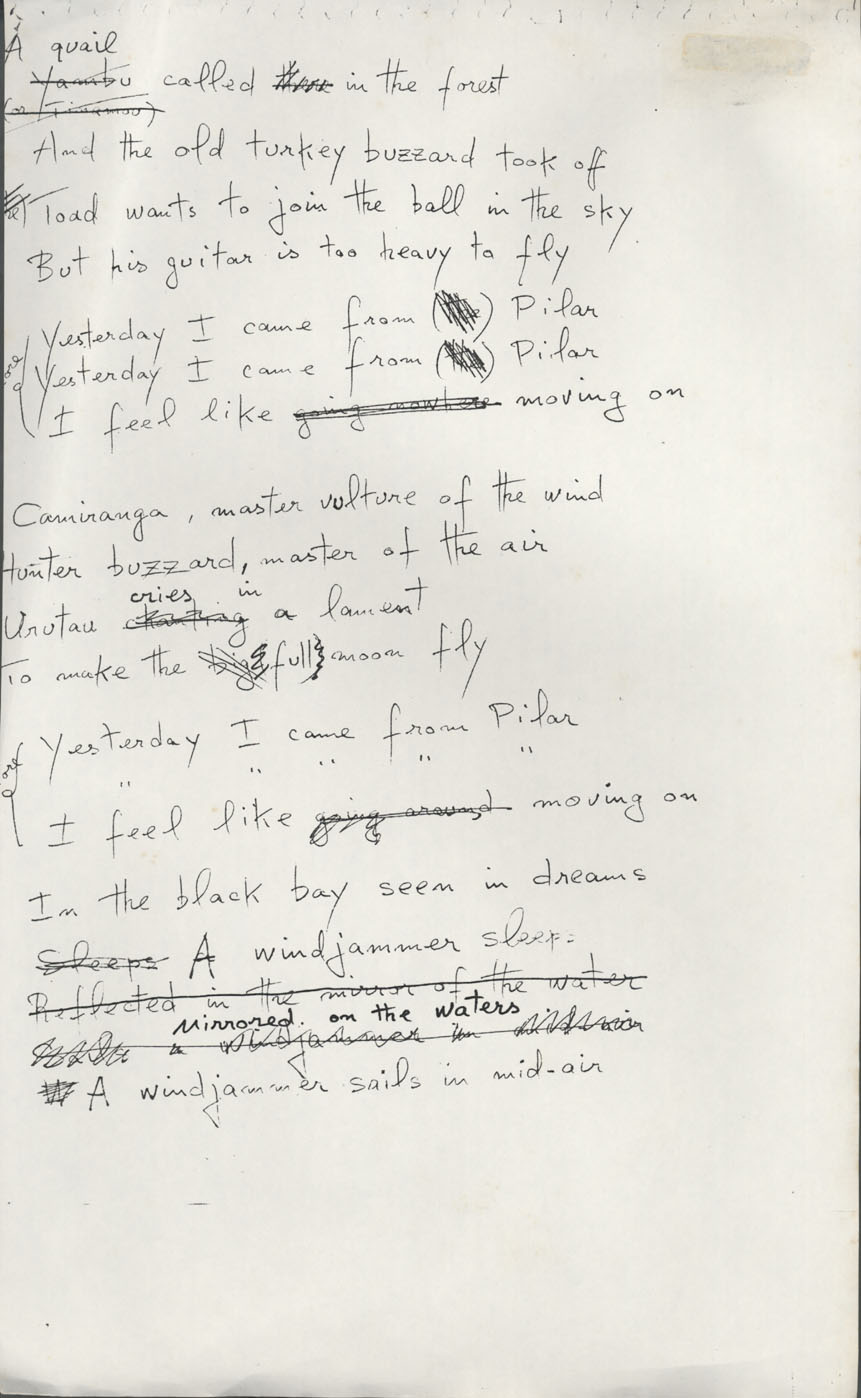 A quail
Yambu called in the forest
(or Tinamou)
And the old turkey buzzard took off
Toad wants to join the ball in the sky
But his guitar is too heavy to fly
Yesterday I came from ( ) Pilar
Yesterday I came from ( ) Pilar
I feel like going nowhere moving on
Camiranga, master vulture of the wind
Hunter buzzard, master of the air
cries in
Urutau chanting a lament
To make the big full moon fly
Yesterday I came from Pilar
" " " " "
I feel like going around moving on
In the black bay seen in dreams
Sleeps A windjammer sleeps
Reflected in the mirror of the water
Mirrored on the waters
a windjammer in mid-air
A windjammer sails in mid-air